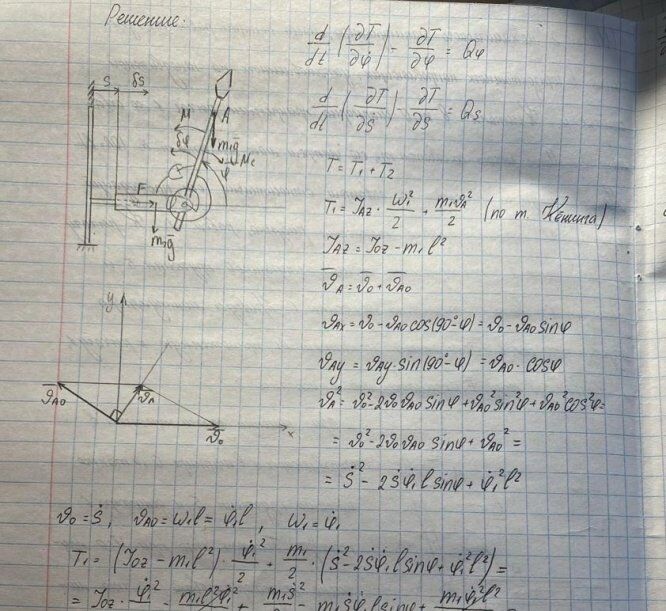 Решение:
d/dt (∂T/∂φ̇) - ∂T/∂φ = Qφ
d/dt (∂T/∂ṡ) - ∂T/∂s = Qs
S δS
M A
δφ m₁g̅ Mc
φ
F
m₂g̅
T = T₁ + T₂
T₁ = J_AZ · ω₁²/2 + m₁ϑ_A²/2 (по т. Кёнига)
J_AZ = J_OZ - m₁l²
ϑ̅_A = ϑ̅_0 + ϑ̅_A0
ϑ_Ax = ϑ_0 - ϑ_A0 cos(90° - φ) = ϑ_0 - ϑ_A0 sinφ
ϑ_Ay = ϑ_Ay · sin(90° - φ) = ϑ_A0 · cosφ
ϑ_A² = ϑ_0² - 2ϑ_0ϑ_A0 sinφ + ϑ_A0² sin²φ + ϑ_A0² cos²φ =
= ϑ_0² - 2ϑ_0ϑ_A0 sinφ + ϑ_A0² =
= ṡ² - 2ṡφ̇₁l sinφ + φ̇₁²l²
y
ϑ̅_A0 ϑ̅_A
ϑ̅_0 x
ϑ_0 = ṡ, ϑ_A0 = ω₁l = φ̇₁l, ω₁ = φ̇₁
T₁ = (J_OZ - m₁l²) · φ̇₁²/2 + m₁/2 · (ṡ² - 2ṡφ̇₁l sinφ + φ̇₁²l²) =
= J_OZ · φ̇₁/2 - m₁l²φ̇₁²/2 + m₁ṡ²/2 - m₁ṡφ̇₁l sinφ + m₁φ̇₁²l²